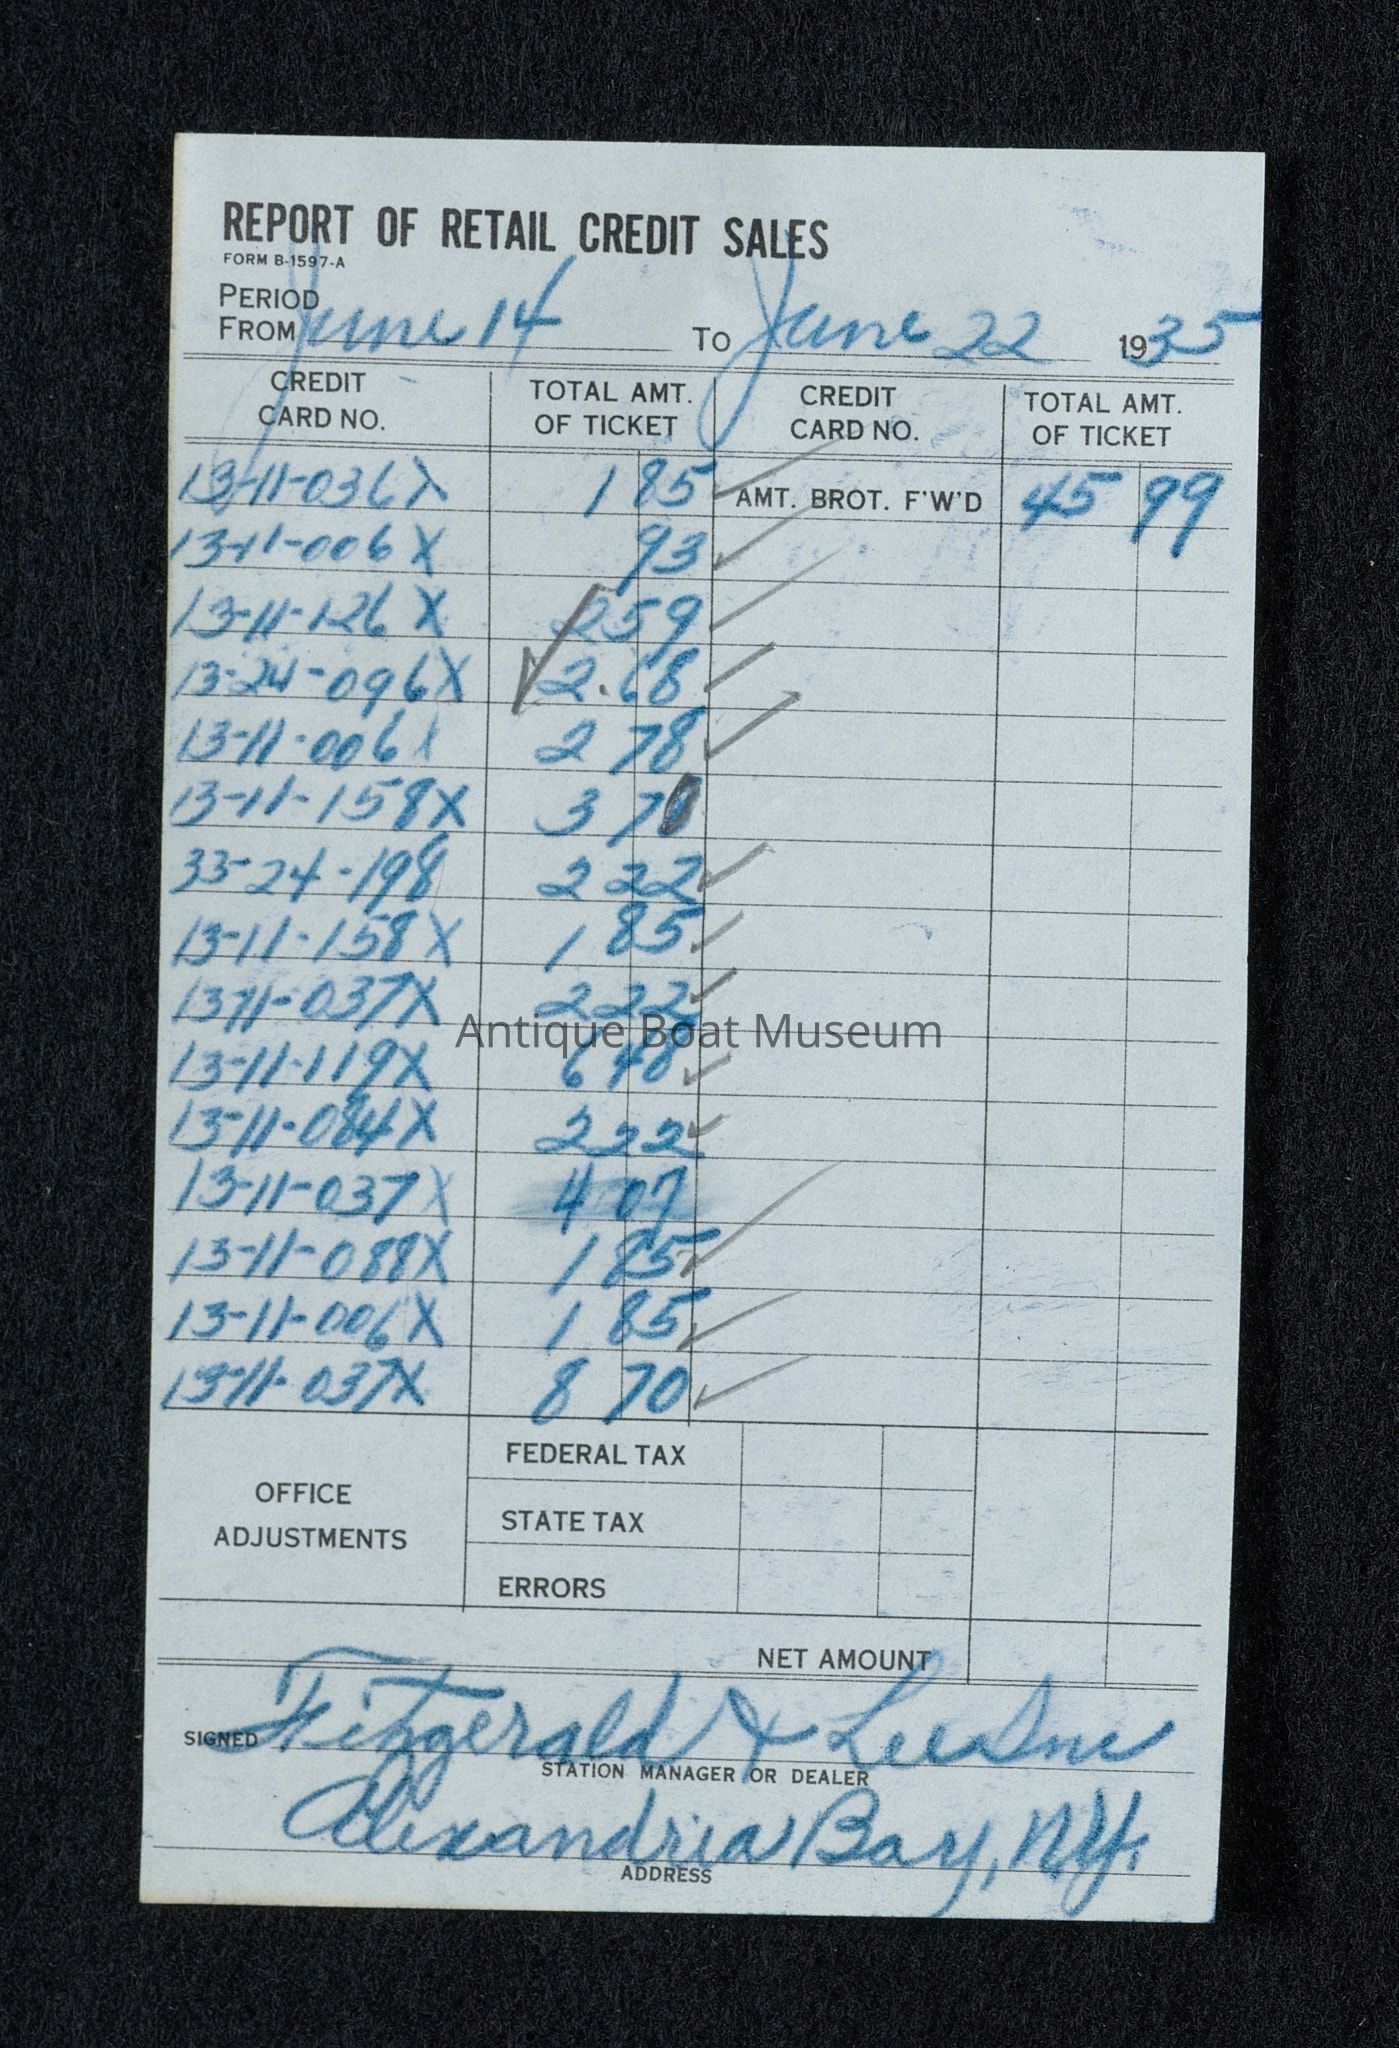 REPORT OF RETAIL CREDIT SALES
FORM B-1597-A
PERIOD
FROM June 14 TO June 22 1935
CREDIT CARD NO. TOTAL AMT. OF TICKET CREDIT CARD NO. TOTAL AMT. OF TICKET
13-11-036X 1 85 AMT. BROT. F'W'D 45 99
13-11-006 X 93
13-11-126 X 2 59
13-24-096X 2.68
13-11-006 X 2 78
13-11-158X 3 70
33-24-198 2 22
13-11-158 X 1 85
13-11-037X 2 22
Antique Boat Museum
13-11-119X 6 48
13-11-084X 2 22
13-11-037X 4 07
13-11-088X 1 85
13-11-006X 1 85
13-11-037X 8 70
OFFICE ADJUSTMENTS
FEDERAL TAX
STATE TAX
ERRORS
NET AMOUNT
SIGNED Fitzgerald & Lee Inc
STATION MANAGER OR DEALER
Alexandria Bay, N.Y.
ADDRESS